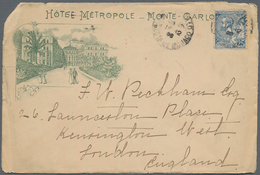 HÔTEL METROPOLE – MONTE-CARLO
F. W. Peckham Esq
26. Launceston Place
Kensington West
London
England